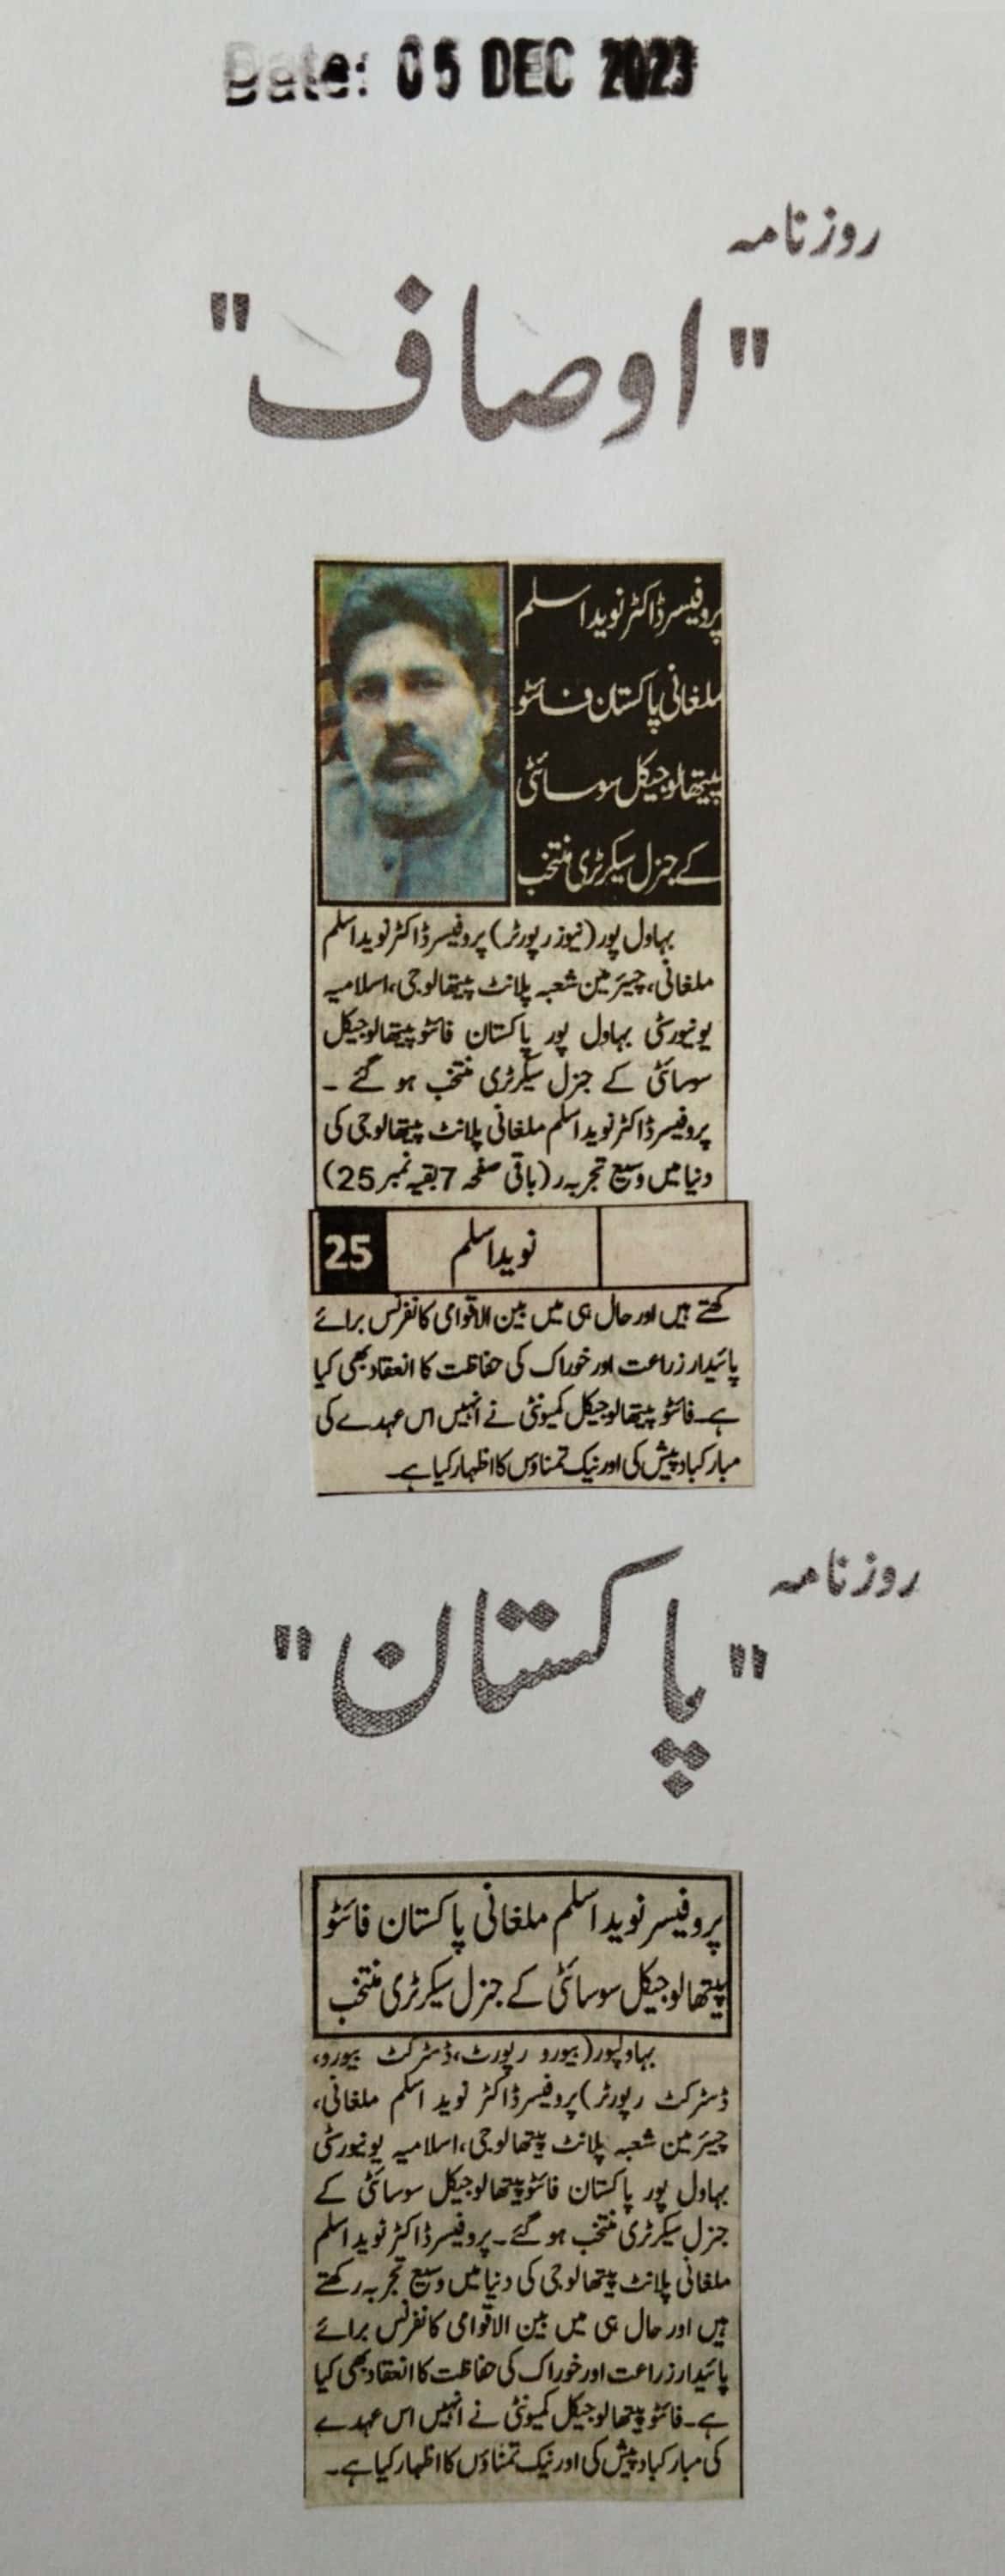 Date: 05 DEC 2023
روزنامہ
"اوصاف"
پروفیسر ڈاکٹر نوید اسلم
ملغانی پاکستان فائٹو
پیتھالوجیکل سوسائٹی
کے جنرل سیکرٹری منتخب
بہاول پور (نیوز رپورٹر) پروفیسر ڈاکٹر نوید اسلم
ملغانی، چیئرمین شعبہ پلانٹ پیتھالوجی، اسلامیہ
یونیورسٹی بہاول پور پاکستان فائٹو پیتھالوجیکل
سوسائٹی کے جنرل سیکرٹری منتخب ہو گئے ۔
پروفیسر ڈاکٹر نوید اسلم ملغانی پلانٹ پیتھالوجی کی
دنیا میں وسیع تجربہ ر (باقی صفحہ 7 بقیہ نمبر 25)
نوید اسلم 25
کھتے ہیں اور حال ہی میں بین الاقوامی کانفرنس برائے
پائیدار زراعت اور خوراک کی حفاظت کا انعقاد بھی کیا
ہے۔ فائٹو پیتھالوجیکل کمیونٹی نے انہیں اس عہدے کی
مبارکباد پیش کی اور نیک تمناؤں کا اظہار کیا ہے۔
روزنامہ
"پاکستان"
پروفیسر نوید اسلم ملغانی پاکستان فائٹو
پیتھالوجیکل سوسائٹی کے جنرل سیکرٹری منتخب
بہاولپور (بیورو رپورٹ، ڈسٹرکٹ بیورو،
ڈسٹرکٹ رپورٹر) پروفیسر ڈاکٹر نوید اسلم ملغانی،
چیئرمین شعبہ پلانٹ پیتھالوجی، اسلامیہ یونیورسٹی
بہاول پور پاکستان فائٹو پیتھالوجیکل سوسائٹی کے
جنرل سیکرٹری منتخب ہو گئے۔ پروفیسر ڈاکٹر نوید اسلم
ملغانی پلانٹ پیتھالوجی کی دنیا میں وسیع تجربہ رکھتے
ہیں اور حال ہی میں بین الاقوامی کانفرنس برائے
پائیدار زراعت اور خوراک کی حفاظت کا انعقاد بھی کیا
ہے۔ فائٹو پیتھالوجیکل کمیونٹی نے انہیں اس عہدے
کی مبارکباد پیش کی اور نیک تمناؤں کا اظہار کیا ہے۔